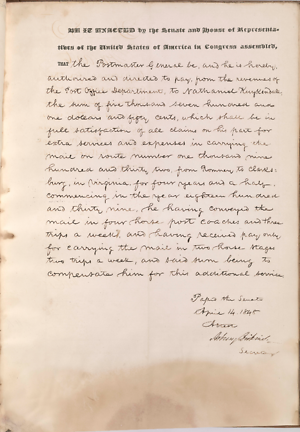 BE IT ENACTED by the Senate and House of Representa-
tives of the United States of America in Congress assembled,
THAT the Postmaster General be, and he is hereby,
authorized and directed to pay, from the revenues of
the Post Office Department, to Nathaniel Kuykendall,
the sum of five thousand seven hundred and
one dollars and fifty cents, which shall be in
full satisfaction of all claims on his part for
extra services and expenses in carrying the
mail on route number one thousand nine
hundred and thirty two, from Romney to Clarks-
burg, in Virginia for four years and a half,
commencing in the year eighteen hundred
and thirty nine, he having conveyed the
mail in four horse post coaches and three
trips a week, and having received pay only
for carrying the mail in two horse stages
two trips a week, and said sum being to
compensate him for this additional service
Passed the Senate
April 14, 184
Attest
Asbury Dickins
Secretary